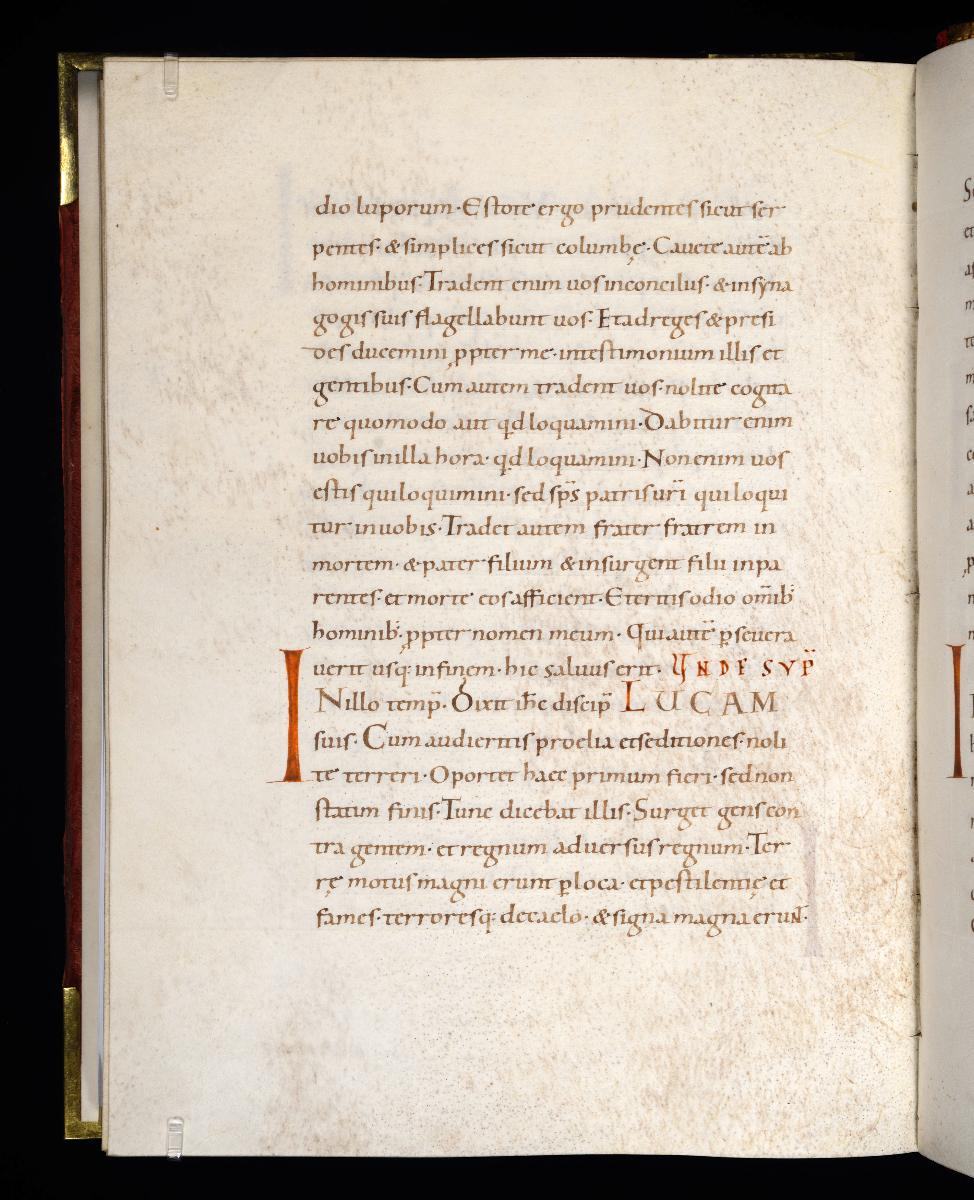 dio luporum· Estote ergo prudentes sicut ser
pentes· & simplices sicut columbę· Cauete autē ab
hominibus· Tradent enim uos inconcilus· & insyna
gogis suis flagellabunt uos· Etadreges & presi
des ducemini ꝓpter me· intestimonium illis et
gentibus· Cum autem tradent uos· nolite cogita
re quomodo aut qd loquamini· Dabitur enim
uobis inilla hora· qd loquamini· Non enim uos
estis qui loquimini· sed sp̄s patris ur̄i qui loqui
tur inuobis· Tradet autem frater fratrem in
mortem· & pater filium & insurgent filii inpa
rentes· et morte eos afficient· Eteritis odio om̄ib·
hominib· ꝓpter nomen meum· Qui autē ꝑseuera
uerit usq; infinem· hic saluus erit· UNDE SUP̄
INillo temp̄· Dixit ih̄c discip̄ LUCAM
suis· Cum audieritis proelia et seditiones· noli
te terreri· Oportet haec primum fieri· sed non
statim finis· Tunc dicebat illis· Surget gens con
tra gentem· et regnum aduersus regnum· Ter
rę motus magni erunt ꝑ loca· et pestilentię et
fames· terroresq; decaelo· & signa magna erunt·